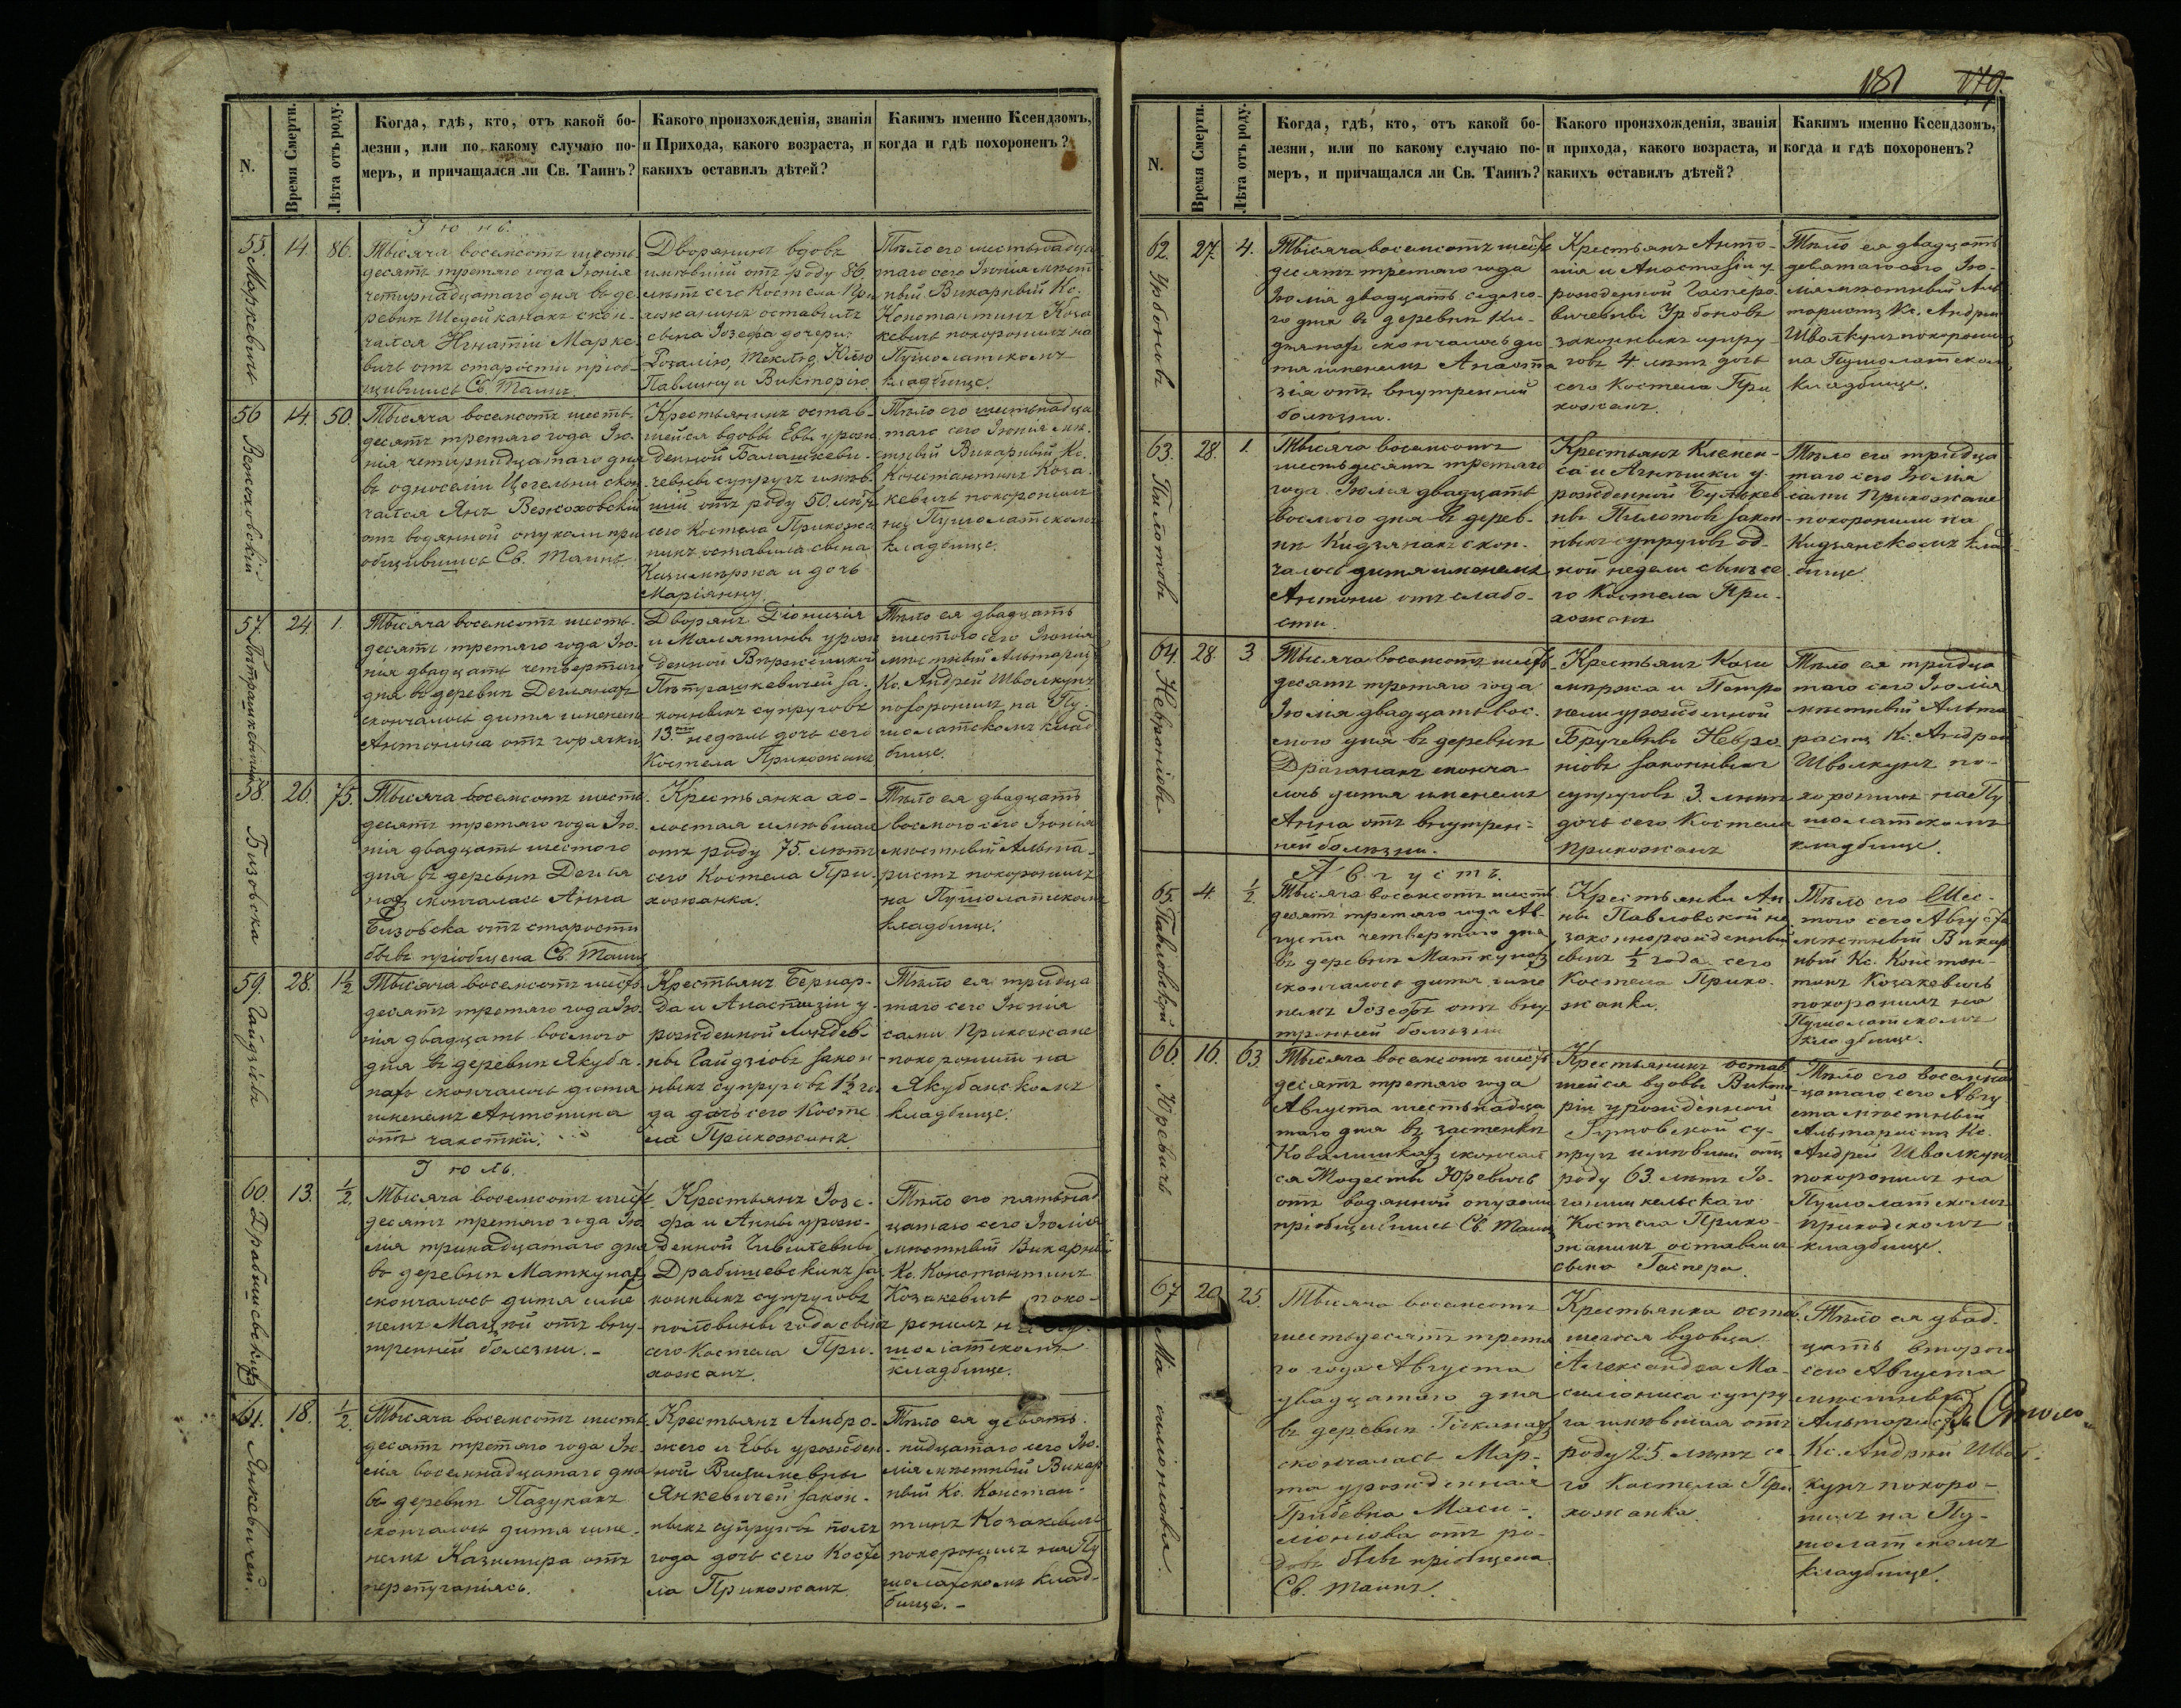 181 179.
N.
Время Смерти.
Лѣта отъ роду.
Когда, гдѣ, кто, отъ какой бо-
лезни, или по какому случаю по-
меръ, и причащался ли Св. Таинъ?
Какого произхожденія, званія
и Прихода, какого возраста, и
какихъ оставилъ дѣтей?
Какимъ именно Ксендзомъ,
когда и гдѣ похороненъ?
Іюнь.
55. Маркевичъ
14.
86.
Тысяча восемсотъ шесть-
десятъ третяго года Іюнія
четырнадцатаго дня въ де-
ревнѣ скон-
чался Игнатій Марке-
вичъ отъ старости пріоб-
щившись Св. Таинъ.
Дворянинъ вдовъ
имѣвшій отъ роду 86.
лѣтъ сего Костела При
хожанинъ оставилъ
сына Іозефа дочери:
Розалію, Теклю, Юлію
Павлину и Викторію
Тѣло его шестьнадца
таго сего Іюнія мѣст
ный Викарный Кс.
Константинъ Коза
кевичъ похоронилъ на
Пушолатскомъ
кладбище.
56
14.
50.
Тысяча восемсотъ шесть-
десятъ третяго года Ію-
нія четырнадцатаго дня
въ односеліи Цегельни скон
чался Янъ
отъ водянной опухоли при
общившись Св. Таинъ
Крестьянинъ остав-
шейся вдовы Евы урож
денной
чевны супругъ имѣв-
шій отъ роду 50. лѣтъ
сего Костела Прихожа
нинъ оставилъ сына
Казимѣржа и дочь
Маріянну.
Тѣло его шестьнадца
таго сего Іюнія мѣ-
стный Викарный Кс.
Константинъ Коза-
кевичъ похоронилъ
на Пушолатскомъ
кладбище.
57.
24.
1.
Тысяча восемсотъ шесть-
десятъ третяго года Ію-
нія двадцать четвертаго
дня въ деревнѣ
скончалось дитя именемъ
Антонина отъ горячки
Дворянъ Діонизія
и урож
денной
Пѣтрашкевичей за-
конныхъ супруговъ
13. недѣль дочь сего
Костела Прихожанъ
Тѣло ея двадцать
шестого сего Іюнія
мѣстный Альтарист
Кс. Андрей Шволкунъ
похоронилъ на Пу-
шолатскомъ клад
бище.
58. Бизовска
26.
75.
Тысяча восемсотъ шесть
десятъ третяго года Ію-
нія двадцать шестого
дня въ деревнѣ
скончалась Анна
Бизовска отъ старости
бывъ пріобщена Св. Таинъ
Крестьянка хо-
лостая имѣвшая
отъ роду 75. лѣтъ
сего Костела При-
хожанка.
Тѣло ея двадцать
восмого сего Іюнія
мѣстный Альта-
ристъ похоронилъ
на Пушолатскомъ
кладбище.
59. Гайдзіовъ
28.
1½
Тысяча восемсотъ шесть
десятъ третяго года Ію-
нія двадцать восмого
дня въ деревнѣ Якуба-
нахъ скончалось дитя
именемъ Антонина
отъ чахотки.
Крестьянъ Бернар-
да и Анастазіи у-
рожденной
ны Гайдзіовъ закон-
ныхъ супруговъ 1½ го
да дочь сего Косте
ла Прихожанъ.
Тѣло ея тридца
таго сего Іюнія
сами Прихожане
похоронили на
Якубанскомъ
кладбище.
Іюль.
60. Драбишевскихъ
13.
½.
Тысяча восемсотъ шесть
десятъ третяго года Ію
лія тринадцатаго дня
въ деревнѣ Маткунахъ
скончалось дитя име
немъ отъ вну-
тренней болезни. -
Крестьянъ Іозе-
фа и Анны урож-
денной
Драбишевскихъ за-
конныхъ супруговъ
половины года сынъ
сего Костела При-
хожанъ.
Тѣло его пятьнад
цатаго сего Іюлія
мѣстный Викарный
Кс. Константинъ
Козакевичъ похо-
ронилъ на Пу-
шолатскомъ
кладбище.
61. Янкевичей.
18.
½.
Тысяча восемсотъ шесть-
десятъ третяго года Ію-
лія восемнадцатаго дня
въ деревнѣ Пазуканъ
скончалось дитя име-
немъ Казимира отъ

Крестьянъ Амбро-
жего и Евы урожден-
ной
Янкевичей закон-
ныхъ супруговъ полъ
года дочь сего Косте
ла Прихожанъ.
Тѣло ея девять-
надцатаго сего Ію-
лія мѣстный Викар-
ный Кс. Констан-
тинъ Козакевичъ
похоронилъ на Пу
шолатскомъ клад-
бище. -
N.
Время Смерти.
Лѣта отъ роду.
Когда, гдѣ, кто, отъ какой бо-
лезни, или по какому случаю по-
меръ, и причащался ли Св. Таинъ?
Какого произхожденія, званія
и прихода, какого возраста, и
какихъ оставилъ дѣтей?
Какимъ именно Ксендзомъ,
когда и гдѣ похороненъ?
62. Урбоновъ
27.
4.
Тысяча восемсотъ шесть
десятъ третяго года
Іюлія двадцать седмо-
го дня въ деревнѣ Ки-
дзянахъ скончалось ди
тя именемъ Анаста
зія отъ внутренній
болѣзни.
Крестьянъ Анто-
нія и Анастазіи у-
рожденной Гаспero-
вичевны Урбоновъ
законныхъ супру-
говъ 4. лѣтъ дочь
сего Костела При
хожанъ.
Тѣло ея двадцать
девятаго сего Ію-
лія мѣстный Аль
таристъ Кс. Андрей
Шволкунъ похоронилъ
на Пушолатском
кладбище.
63. Пилотовъ
28.
1.
Тысяча восемсотъ
шестьдесятъ третяго
года Іюлія двадцать
восмого дня въ дерев-
нѣ Кидзянахъ скон-
чалось дитя именемъ
Антони отъ слабо-
сти.
Крестьянъ Клемен-
са и Агнѣшки у-
рожденной
ны Пилотовъ закон-
ныхъ супруговъ од-
ной недели сынъ се
го Костела При-
хожанъ
Тѣло его тридца
таго сего Іюлія
сами Прихожане
похоронили на
Кидзянскомъ клад-
бище
64. Невроніовъ
28.
3
Тысяча восемсотъ шесть
десятъ третяго года
Іюлія двадцать вос-
мого дня въ деревнѣ
Драганахъ сконча-
лось дитя именемъ
Анна отъ внутрен-
ней болѣзни.
Крестьянъ Кази
мѣржа и Петро
нели урожденной
Невро
ніовъ законныхъ
супруговъ 3. лѣтъ
дочь сего Костела
Прихожанъ
Тѣло ея тридца
таго сего Іюлія
мѣстный Альта
ристъ Кс. Андрей
Шволкунъ по-
хоронилъ на Пу
шолатскомъ
кладбище.
Августъ.
65. Павловской
4.
½.
Тысяча восемсотъ шесть
десятъ третяго года Ав-
густа четвертаго дня
въ деревнѣ Маткунахъ
скончалось дитя име
немъ Іозефъ отъ вну
тренней болѣзни
Крестьянки Ан-
ны Павловской не
законнорожденный
сынъ ½ года сего
Костела Прихо-
жанки.
Тѣло его Шес-
того сего Августа
мѣстный Викар
ный Кс. Констан-
тинъ Козакевичъ
похоронилъ на
Пушолатскомъ
кладбище.
66. Юревичъ
16.
63.
Тысяча восемсотъ шесть
десятъ третяго года
Августа шестьнадца
таго дня въ застенкѣ
Ковалишкахъ скончал
ся Модестъ Юревичъ
отъ водянной опухоли
пріобщившись Св. Таинъ
Крестьянинъ остав
шейся вдовы Викто
ріи урожденной
су-
пругъ имѣвшій отъ
роду 63. лѣтъ Іо-
ганишкельскаго
Костела Прихо-
жанинъ оставилъ
сына Гаспера.
Тѣло его восемнад
цатаго сего Авгу
ста мѣстный
Альтаристъ Кс.
Андрей Шволкунъ
похоронилъ на
Пушолатскомъ
приходскомъ
кладбище.
67.
20.
25.
Тысяча восемсотъ
шестьдесятъ третя
го года Августа
двадцатаго дня
въ деревнѣ
скончалась Мар-
та урожденная
Грибевна Маси-
ліоніова отъ ро-
довъ бывъ пріобщена
Св. Таинъ.
Крестьянка остав-
шегося вдовца
Александра Ма-
силіониса супру
га имѣвшая отъ
роду 25. лѣтъ се-
го Костела При
хожанка.
Тѣло ея двад-
цать второго
сего Августа
мѣстный
Альтаристъ
Кс. Андрей Швол-
кунъ похоро-
нилъ на Пу-
шолатскомъ
кладбище.